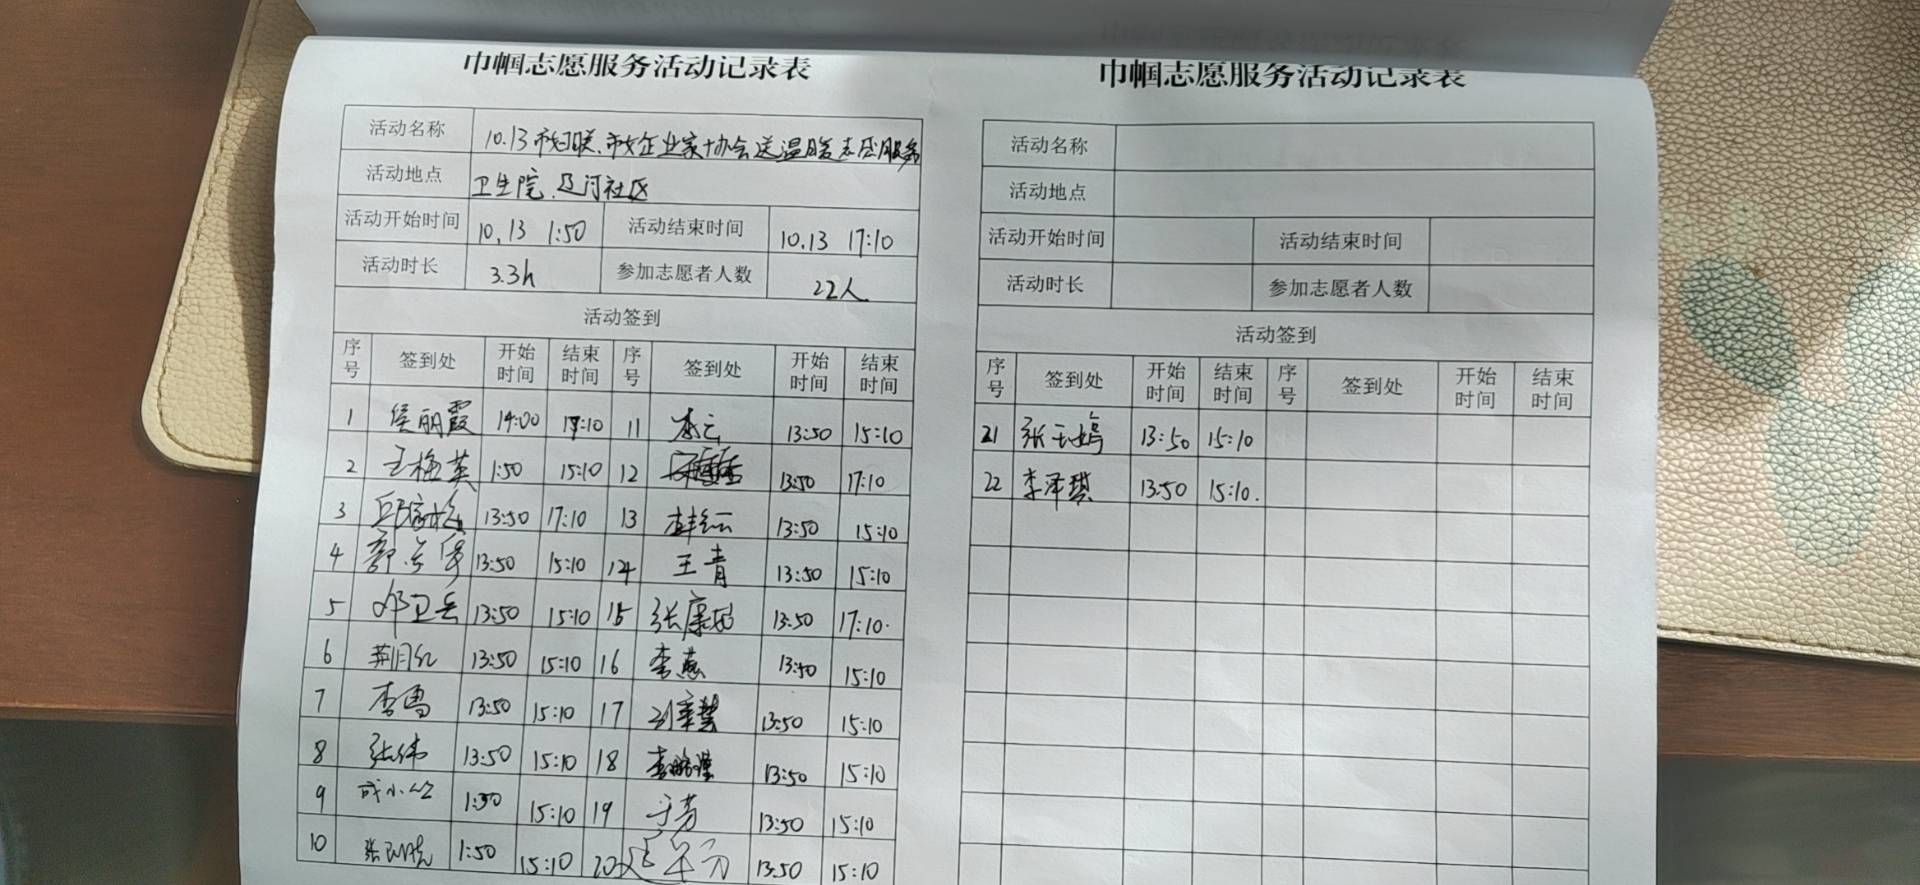 巾帼志愿服务活动记录表
活动名称 10.13 市妇联、市女企业家协会送温暖志愿服务
活动地点 卫生院、辽河社区
活动开始时间 10.13 1:50 活动结束时间 10.13 17:10
活动时长 3.3h 参加志愿者人数 22人
活动签到
序号 签到处 开始时间 结束时间 序号 签到处 开始时间 结束时间
1 侯丽霞 14:00 17:10 11 李云 13:50 15:10
2 王梅英 1:50 15:10 12 13:50 17:10
3 13:50 17:10 13 13:50 15:10
4 13:50 15:10 14 王青 13:50 15:10
5 邓卫兵 13:50 15:10 15 张康 13:50 17:10.
6 荆月红 13:50 15:10 16 李燕 13:50 15:10
7 李雪 13:50 15:10 17 13:50 15:10
8 张伟 13:50 15:10 18 13:50 15:10
9 1:50 15:10 19 于芳 13:50 15:10
10 张 1:50 15:10 20 13:50 15:10
巾帼志愿服务活动记录表
活动名称
活动地点
活动开始时间 活动结束时间
活动时长 参加志愿者人数
活动签到
序号 签到处 开始时间 结束时间 序号 签到处 开始时间 结束时间
21 张玉嫣 13:50 15:10
22 李泽琪 13:50 15:10.